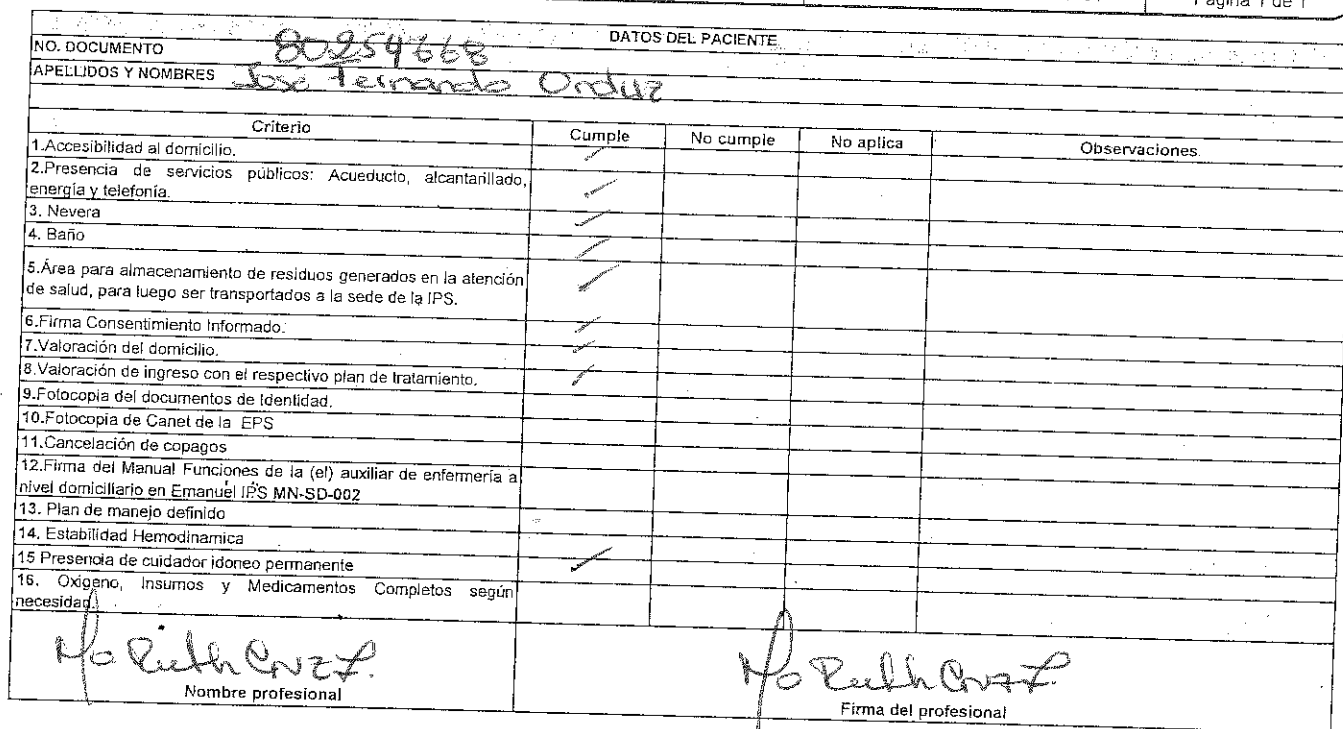 Página 1 de 1
DATOS DEL PACIENTE
NO. DOCUMENTO 80254668
APELLIDOS Y NOMBRES José Fernando Orduz
Criterio Cumple No cumple No aplica Observaciones
1.Accesibilidad al domicilio. ✓
2.Presencia de servicios públicos: Acueducto, alcantarillado,
energía y telefonía. ✓
3. Nevera ✓
4. Baño ✓
5.Área para almacenamiento de residuos generados en la atención
de salud, para luego ser transportados a la sede de la IPS. ✓
6.Firma Consentimiento Informado. ✓
7.Valoración del domicilio. ✓
8.Valoración de ingreso con el respectivo plan de tratamiento. ✓
9.Fotocopia del documentos de Identidad.
10.Fotocopia de Canet de la EPS
11.Cancelación de copagos
12.Firma del Manual Funciones de la (el) auxiliar de enfermería a
nivel domiciliario en Emanuel IPS MN-SD-002
13. Plan de manejo definido
14. Estabilidad Hemodinamica
15 Presencia de cuidador idoneo permanente ✓
16. Oxigeno, Insumos y Medicamentos Completos según
necesidad.
Ma Ruth Cruz L. Ma Ruth Cruz L.
Nombre profesional Firma del profesional